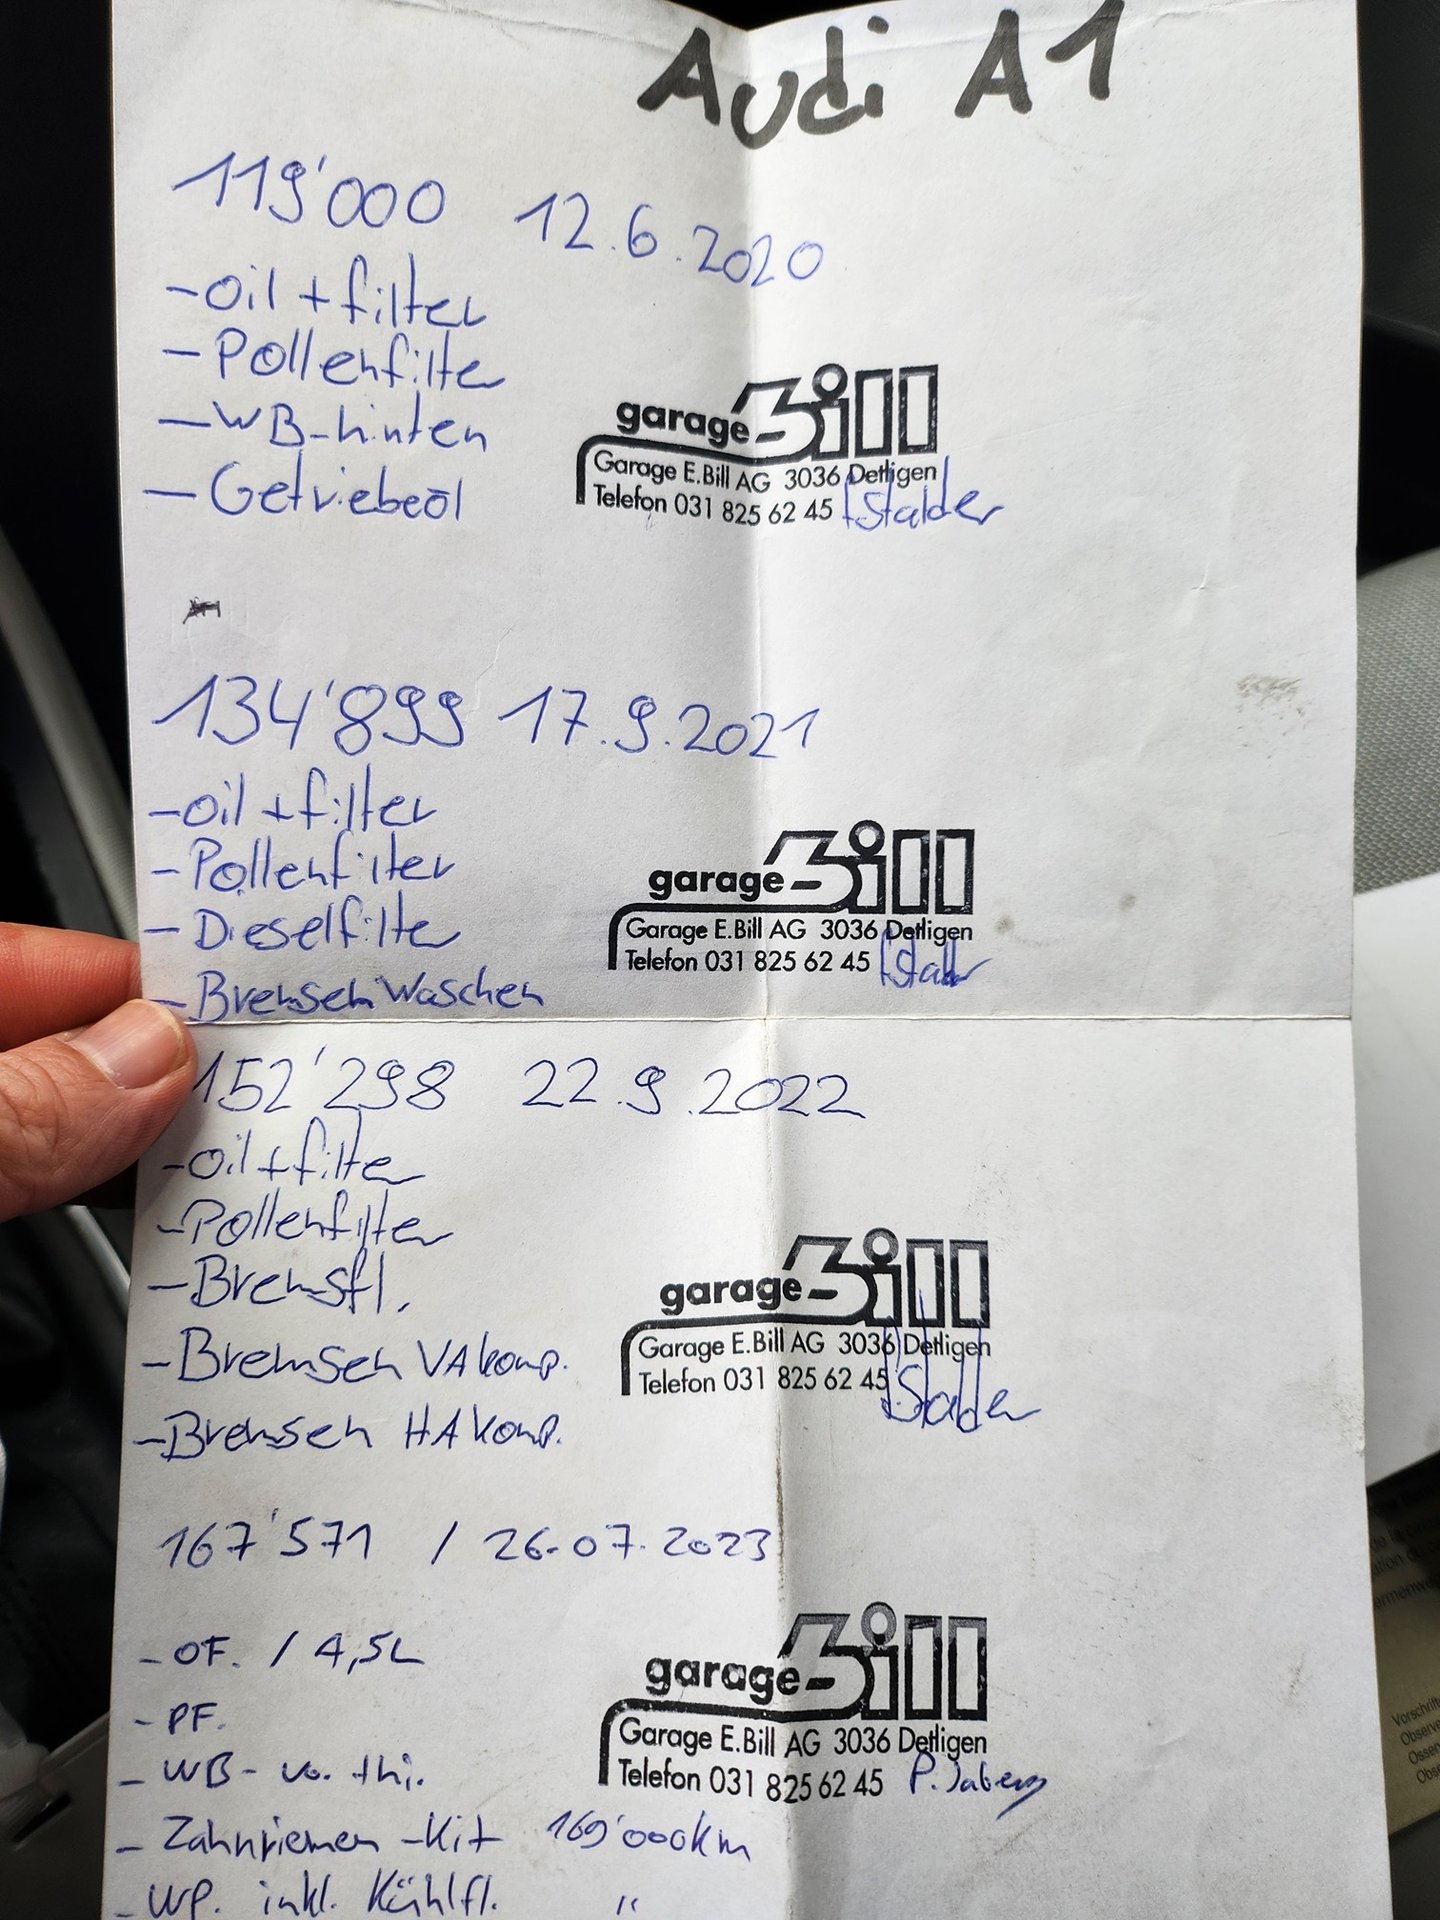 Audi A1
119'000 12.6.2020
- Oil + filter
- Pollenfilter
- WB-hinten
- Getriebeöl
garage Bill
Garage E.Bill AG 3036 Detligen
Telefon 031 825 62 45 Stalder
134'899 17.9.2021
- Oil + filter
- Pollenfilter
- Dieselfilter
- Bremsen Waschen
garage Bill
Garage E.Bill AG 3036 Detligen
Telefon 031 825 62 45 Stalder
152'298 22.9.2022
- Oil + filter
- Pollenfilter
- Bremsfl.
- Bremsen VA komp.
- Bremsen HA komp.
garage Bill
Garage E.Bill AG 3036 Detligen
Telefon 031 825 62 45 Stalder
167'571 / 26.07.2023
- OF. / 4,5L
- PF.
- WB - vo. + hi.
- Zahnriemen - Kit 169'000km
- WP. inkl. Kühlfl. "
garage Bill
Garage E.Bill AG 3036 Detligen
Telefon 031 825 62 45 P.
Vorschrift
Observe